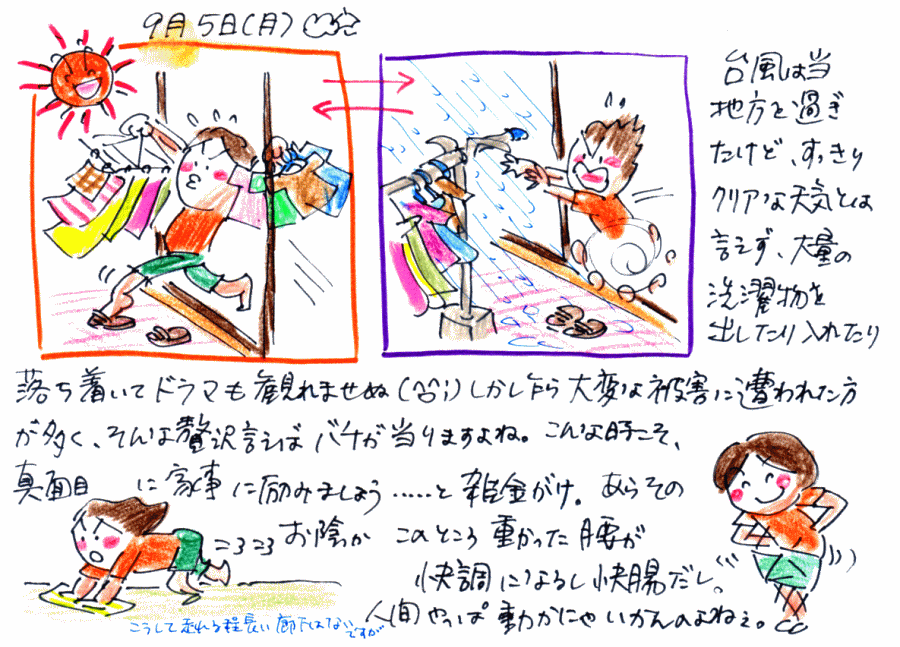 9月5日(月)
台風は当
地方を過ぎ
たけど、すっきり
クリアな天気とは
言えず、大量の
洗濯物を
出したり入れたり
落ち着いてドラマも観れませぬ(合;)しかし乍ら大変な被害に遭われた方
が多く、そんな贅沢言えばバチが当りますよね。こんな時こそ、
真面目に家事に励みましょう……と雑金がけ。あらその
お陰か このところ重かった腰が
快調になるし快腸だし。
人間やっぱ動かにゃいかんのよねぇ。
こうして走れる程長い廊下はない
ですが